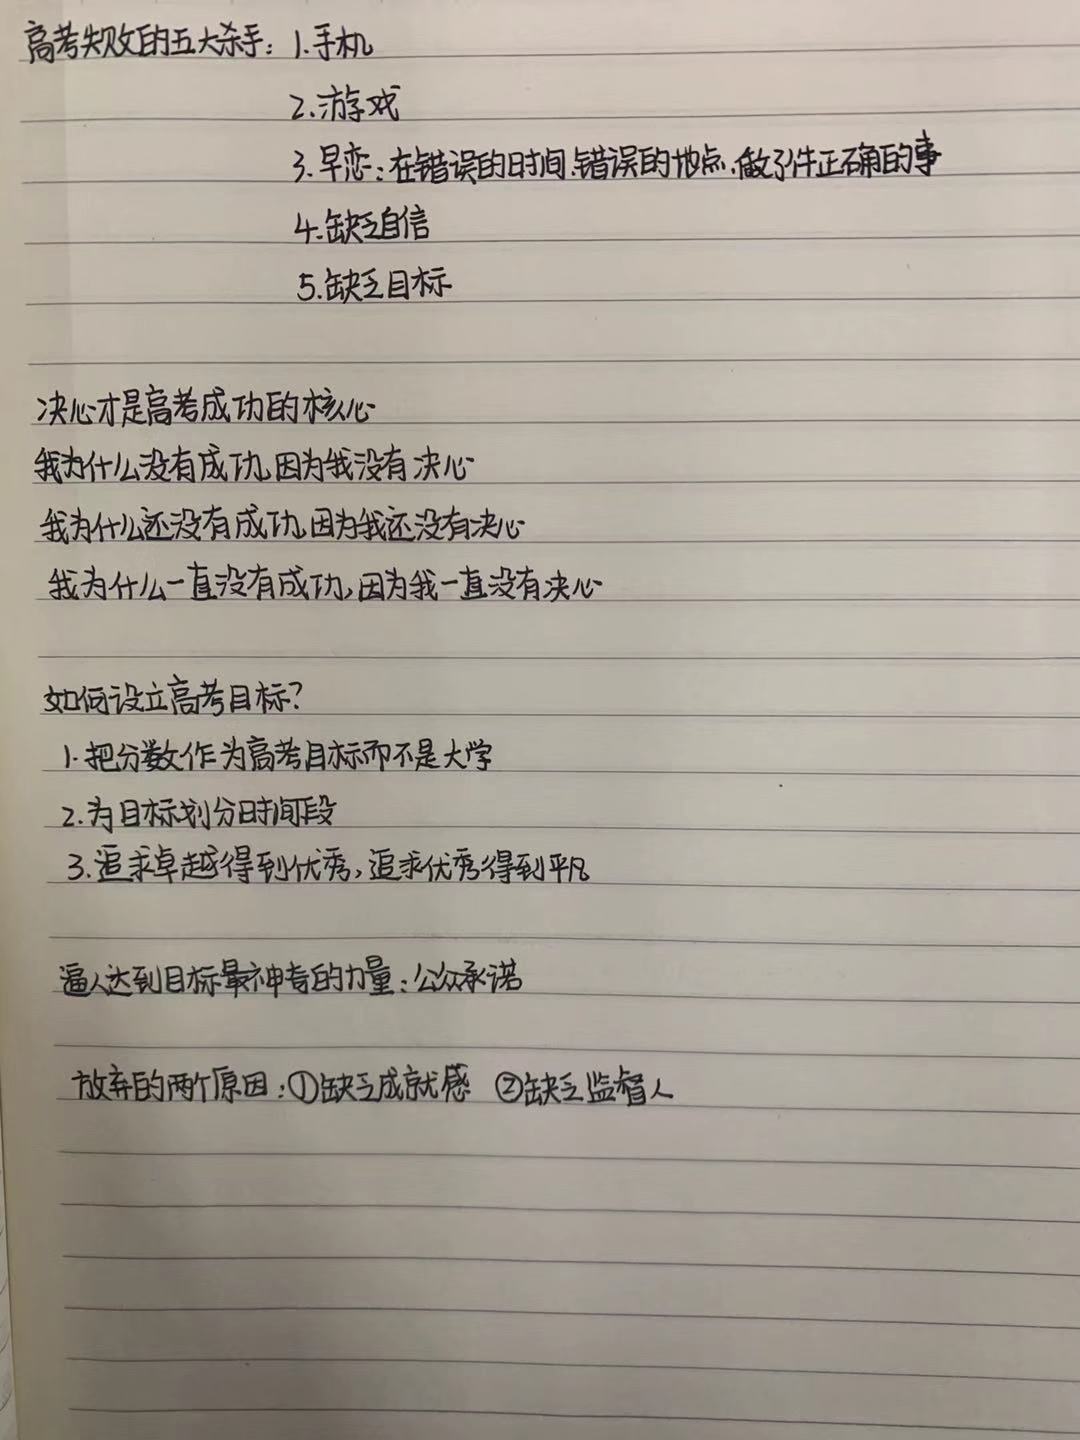 高考失败的五大杀手：1.手机
2.游戏
3.早恋：在错误的时间.错误的地点.做了件正确的事
4.缺乏自信
5.缺乏目标
决心才是高考成功的核心
我为什么没有成功,因为我没有决心
我为什么还没有成功,因为我还没有决心
我为什么一直没有成功,因为我一直没有决心
如何设立高考目标?
1.把分数作为高考目标而不是大学
2.为目标划分时间段
3.追求卓越得到优秀,追求优秀得到平凡
逼人达到目标最神奇的力量：公众承诺
放弃的两个原因：①缺乏成就感 ②缺乏监督人